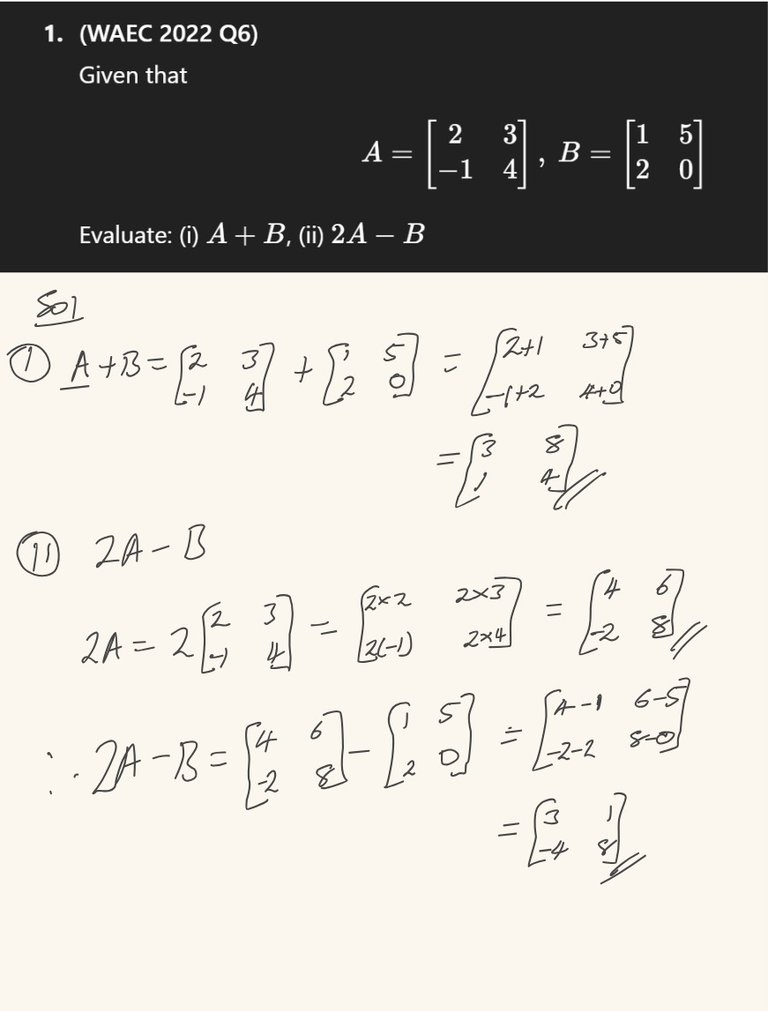 1. (WAEC 2022 Q6)
Given that
A = [2 3; -1 4], B = [1 5; 2 0]
Evaluate: (i) A + B, (ii) 2A − B
Sol
(i) A+B = [2 3; -1 4] + [1 5; 2 0] = [2+1 3+5; -1+2 4+0]
= [3 8; 1 4]
(ii) 2A - B
2A = 2[2 3; -1 4] = [2×2 2×3; 2(-1) 2×4] = [4 6; -2 8]
∴ 2A - B = [4 6; -2 8] - [1 5; 2 0] = [4-1 6-5; -2-2 8-0]
= [3 1; -4 8]